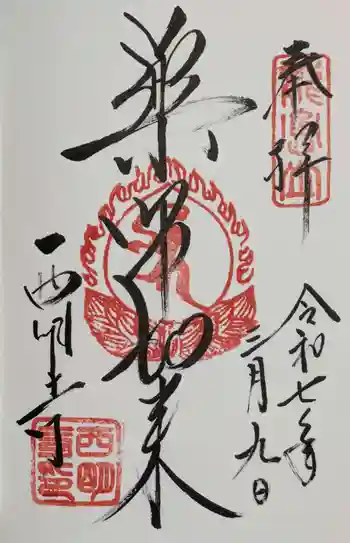 奉拝
令和七年
三月九日
薬師如来
西明寺
西明
寺印